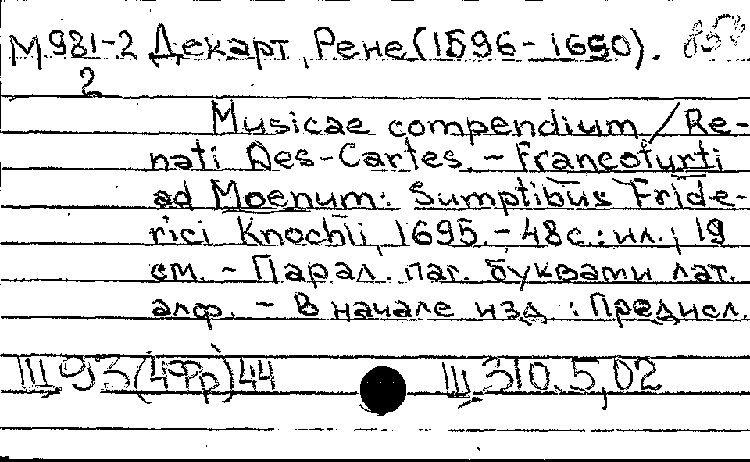 М 981-2 Декарт, Рене (1596-1650). 858
2
Musicae compendium / Re-
nati Des-Cartes. - Francofurti
ad Moenum: Sumptibus Fride-
rici Knochii, 1695. - 48 с.: ил.; 19
см. - Парал. паг. буквами лат.
алф. - В начале изд.: Предисл.
Ш 93(4Фр)44 Ш 310.5,02